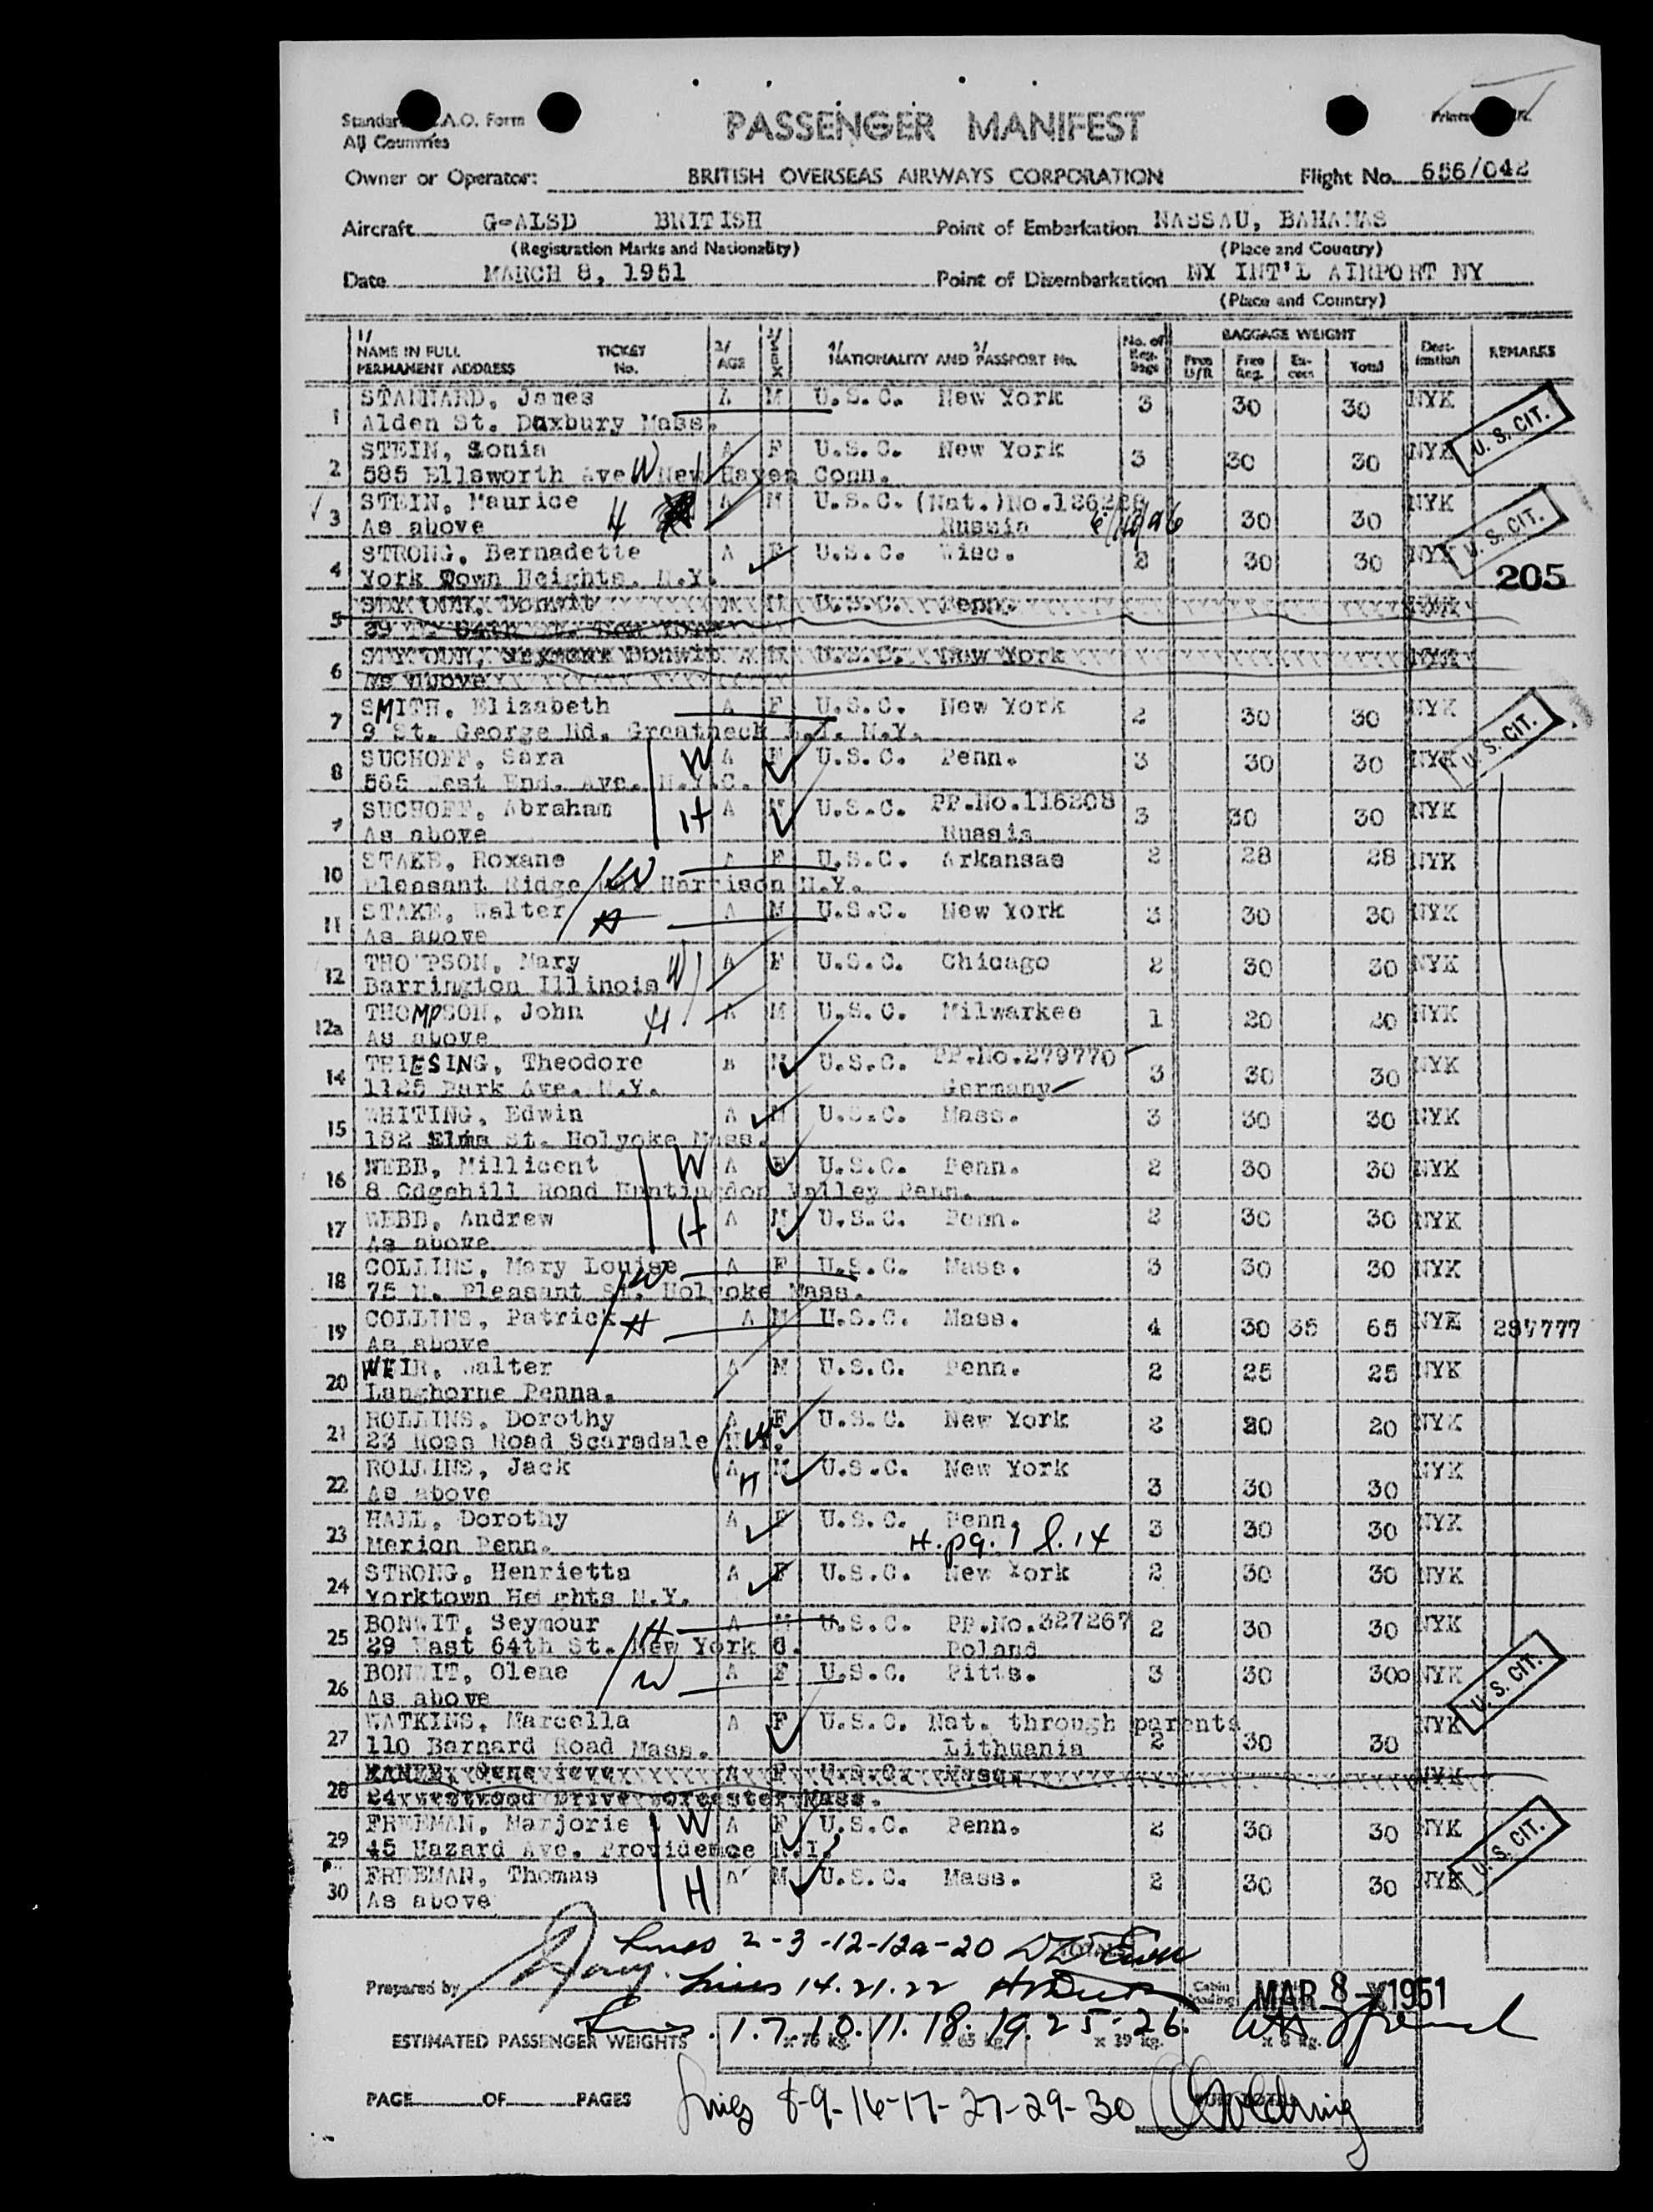 Standar .A.O. Form
All Countries
PASSENGER MANIFEST
Owner or Operator: BRITISH OVERSEAS AIRWAYS CORPORATION Flight No. 656/042
Aircraft G-ALSD BRITISH Point of Embarkation NASSAU, BAHAMAS
(Registration Marks and Nationality) (Place and Country)
Date MARCH 8, 1951 Point of Disembarkation NY INT'L AIRPORT NY
(Place and Country)
1/ NAME IN FULL PERMANENT ADDRESS TICKET No. 2/ AGE 3/ SEX 4/ NATIONALITY AND 5/ PASSPORT No. No. of BAGGAGE WEIGHT Free Free Ex- Total Dest- ination REMARKS
1 STANNARD, James A M U.S.C. New York 3 30 30 NYK
Alden St. Duxbury Mass. U. S. CIT.
2 STEIN, Sonia A F U.S.C. New York 3 30 30 NYK
585 Ellsworth Ave W New Haven Conn.
3 STEIN, Maurice A M U.S.C. (Nat.)No. 30 30 NYK
As above H Russia U. S. CIT.
4 STRONG, Bernadette A F U.S.C. Wisc. 2 30 30 NYK
York Town Heights. N.Y. 205
5 U.S.C. Penn.
6 U.S.C. New York
As above
7 SMITH, Elizabeth A F U.S.C. New York 2 30 30 NYK
9 St. George Rd. Greatneck L.I. N.Y. U. S. CIT.
8 SUCHOFF, Sara W A F U.S.C. Penn. 3 30 30 NYK
565 West End. Ave. N.Y.C.
9 SUCHOFF, Abraham H A M U.S.C. PP.No.116208 3 30 30 NYK
As above Russia
10 STAKE, Roxane A F U.S.C. Arkansas 2 28 28 NYK
Pleasant Ridge W Harrison N.Y.
11 STAKE, Walter H A M U.S.C. New York 3 30 30 NYK
As above
12 THO PSON, Mary W A F U.S.C. Chicago 2 30 30 NYK
Barrington Illinois
12a THOMPSON, John H A M U.S.C. Milwarkee 1 20 20 NYK
As above
14 THIESING, Theodore M U.S.C. PP.No.279770 3 30 30 NYK
1125 Park Ave. N.Y. Germany
15 WHITING, Edwin A M U.S.C. Mass. 3 30 30 NYK
182 Elms St. Holyoke Mass.
16 WEBB, Millicent W A F U.S.C. Penn. 2 30 30 NYK
8 Odgehill Road Huntingdon Valley Penn.
17 WEBB, Andrew H A M U.S.C. Penn. 2 30 30 NYK
As above
18 COLLINS, Mary Louise W A F U.S.C. Mass. 3 30 30 NYK
75 N. Pleasant St. Holyoke Mass.
19 COLLINS, Patrick H A M U.S.C. Mass. 4 30 35 65 NYK 287777
As above
20 WEIR, Walter A M U.S.C. Penn. 2 25 25 NYK
Langhorne Penna.
21 ROLLINS, Dorothy A F U.S.C. New York 2 20 20 NYK
23 Ross Road Scarsdale N.Y. W
22 ROLLINS, Jack A H M U.S.C. New York 3 30 30 NYK
As above
23 HALL, Dorothy A F U.S.C. Penn. 3 30 30 NYK
Merion Penn. H. pg. 1 l. 14
24 STRONG, Henrietta A F U.S.C. New York 2 30 30 NYK
Yorktown Heights N.Y.
25 BONWIT, Seymour H A M U.S.C. PP.No.327267 2 30 30 NYK
29 East 64th St. New York C. Poland
26 BONWIT, Olene W A F U.S.C. Pitts. 3 30 300 NYK
As above U. S. CIT.
27 WATKINS, Marcella A F U.S.C. Nat. through parents NYK
110 Barnard Road Mass. Lithuania 2 30 30
28 Genevieve A F U.S.C. Mass. NYK
Drive Worcester Mass.
29 FREEMAN, Marjorie W A F U.S.C. Penn. 2 30 30 NYK
45 Hazard Ave. Providence R.I. U. S. CIT.
30 FREEMAN, Thomas H A M U.S.C. Mass. 2 30 30 NYK
As above
Lines 2-3-12-12a-20
Prepared by Lines 14.21.22 MAR 8 - 1951
Lines. 1.7.10.11.18.19.25-26.
ESTIMATED PASSENGER WEIGHTS x 76 kg. x 65 kg. x 39 kg. x 8 kg.
PAGE OF PAGES Lines 8-9-16-17-27-29-30